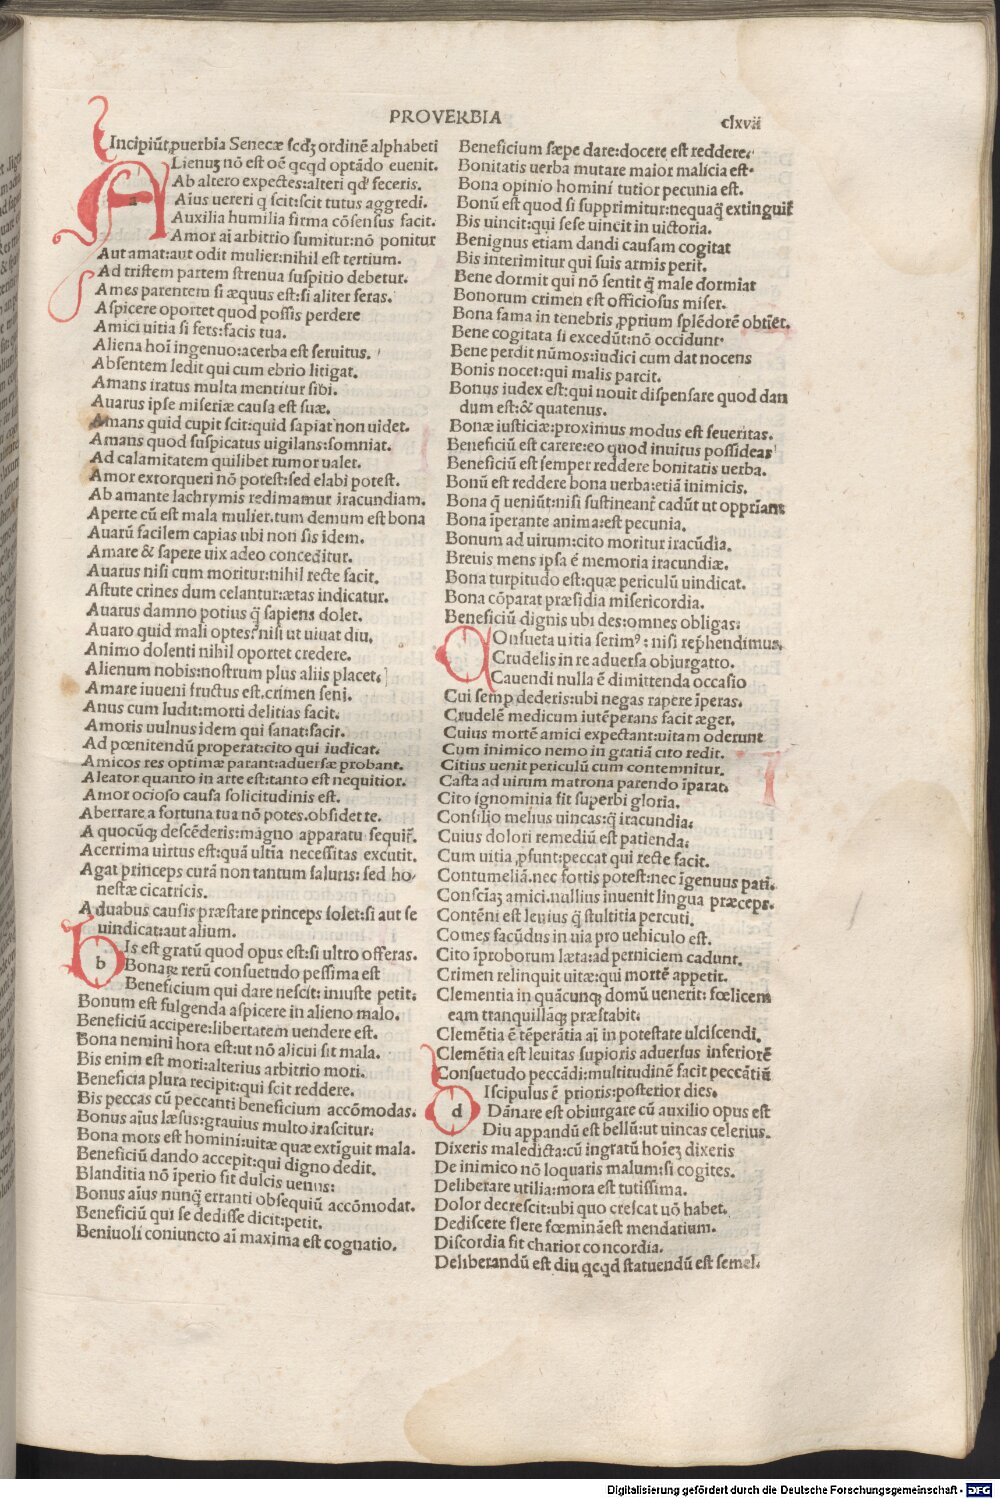 PROVERBIA
clxvii
Incipiūt ꝓuerbia Senecæ scdʒ ordinē alphabeti
a
ALienuʒ nō est oē qcqd optādo euenit.
Ab altero expectes:alteri qd' feceris.
Aīus uereri q scit:scit tutus aggredi.
Auxilia humilia firma cōsensus facit.
Amor aī arbitrio sumitur:nō ponitur
Aut amat:aut odit mulier:nihil est tertium.
Ad tristem partem strenua suspitio debetur.
Ames parentem si æquus est:si aliter feras.
Aspicere oportet quod possis perdere
Amici uitia si fers:facis tua.
Aliena hoī ingenuo:acerba est seruitus.
Absentem ledit qui cum ebrio litigat.
Amans iratus multa mentitur sibi.
Auarus ipse miseriæ causa est suæ.
Amans quid cupit scit:quid sapiat non uidet.
Amans quod suspicatus uigilans:somniat.
Ad calamitatem quilibet rumor ualet.
Amor extorqueri nō potest:sed elabi potest.
Ab amante lachrymis redimamur iracundiam.
Aperte cū est mala mulier.tum demum est bona
Auarū facilem capias ubi non sis idem.
Amare & sapere uix adeo conceditur.
Auarus nisi cum moritur:nihil recte facit.
Astute crines dum celantur:ætas indicatur.
Auarus damno potius q̄ sapiens dolet.
Auaro quid mali optes?nisi ut uiuat diu.
Animo dolenti nihil oportet credere.
Alienum nobis:nostrum plus aliis placet.
Amare iuueni fructus est.crimen seni.
Anus cum ludit:morti delitias facit.
Amoris uulnus idem qui sanat:facit.
Ad pœnitendū properat:cito qui iudicat.
Amicos res optimæ parant:aduersæ probant.
Aleator quanto in arte est:tanto est nequitior.
Amor ocioso causa solicitudinis est.
Aberrare a fortuna tua nō potes.obsidet te.
A quocūqʒ descēderis:magno apparatu sequiř.
Acerrima uirtus est:quā ultia necessitas excutit.
Agat princeps curā non tantum salutis: sed ho-
nestæ cicatricis.
A duabus causis præstare princeps solet:si aut se
uindicat:aut alium.
b
BIs est gratū quod opus est:si ultro offeras.
Bonaꝝ rerū consuetudo pessima est
Beneficium qui dare nescit: iniuste petit.
Bonum est fulgenda aspicere in alieno malo.
Beneficiū accipere:libertatem uendere est.
Bona nemini hora est:ut nō alicui sit mala.
Bis enim est mori:alterius arbitrio mori.
Beneficia plura recipit:qui scit reddere.
Bis peccas cū peccanti beneficium accōmodas.
Bonus aīus læsus:grauius multo irascitur.
Bona mors est homini:uitæ quæ extīguit mala.
Beneficiū dando accepit:qui digno dedit.
Blanditia nō īperio fit dulcis uenus:
Bonus aīus nunq̄ erranti obsequiū accōmodat.
Beneficiū qui se dedisse dicit:petit.
Beniuoli coniuncto aī maxima est cognatio.
Beneficium sæpe dare:docere est reddere.
Bonitatis uerba mutare maior malicia est.
Bona opinio homini tutior pecunia est.
Bonū est quod si supprimitur:nequaq̄ extinguit̄
Bis uincit:qui sese uincit in uictoria.
Benignus etiam dandi causam cogitat
Bis interimitur qui suis armis perit.
Bene dormit qui nō sentit q̄ male dormiat
Bonorum crimen est officiosus miser.
Bona fama in tenebris ꝓprium splēdorē obtiēt.
Bene cogitata si excedūt:nō occidunt.
Bene perdit nūmos:iudici cum dat nocens
Bonis nocet:qui malis parcit.
Bonus iudex est:qui nouit dispensare quod dan
dum est:& quatenus.
Bonæ iusticiæ:proximus modus est seueritas.
Beneficiū est carere:eo quod inuitus possideas
Beneficiū est semper reddere bonitatis uerba.
Bonū est reddere bona uerba:etiā inimicis.
Bona q̄ ueniūt:nisi sustineant̄ cadūt ut opprīant
Bona īperante anima:est pecunia.
Bonum ad uirum:cito moritur iracūdia.
Breuis mens ipsa ē memoria iracundiæ.
Bona turpitudo est:quæ periculū uindicat.
Bona cōparat præsidia misericordia.
Beneficiū dignis ubi des:omnes obligas.
COnsueta uitia ferimꝰ: nisi rep̄hendimus.
Crudelis in re aduersa obiurgatio.
Cauendi nulla ē dimittenda occasio
Cui semp dederis:ubi negas rapere īperas.
Crudelē medicum iutēperans facit æger.
Cuius mortē amici expectant:uitam oderunt
Cum inimico nemo in gratiā cito redit.
Citius uenit periculū cum contemnitur.
Casta ad uirum matrona parendo īparat.
Cito ignominia fit superbi gloria.
Consilio melius uincas:q̄ iracundia.
Cuius dolori remediū est patienda.
Cum uitia ꝓsunt:peccat qui recte facit.
Contumeliā.nec fortis potest:nec īgenuus pati.
Consciaʒ amici.nullius inuenit lingua præceps.
Contēni est leuius q̄ stultitia percuti.
Comes facūdus in uia pro uehiculo est.
Cito īproborum læta:ad perniciem cadunt.
Crimen relinquit uitæ:qui mortē appetit.
Clementia in quācunqʒ domū uenerit: fœlicem
eam ttanquillāqʒ præstabit.
Clemētia ē tēperātia aī in potestate ulciscendi.
Clemētia est leuitas supioris aduersus inferiorē
Consuetudo peccādi:multitudinē facit peccātiū
d
DIscipulus ē prioris:posterior dies.
Dānare est obiurgare cū auxilio opus est
Diu appandū est bellū:ut uincas celerius.
Dixeris maledicta:cū ingratū hoīeʒ dixeris
De inimico nō loquaris malum:si cogites.
Deliberare utilia:mora est tutissima.
Dolor decrescit:ubi quo crescat uō habet.
Dediscere flere fœminā:est mendatium.
Discordia fit charior concordia.
Deliberandū est diu qcqd statuendū est semel.
Digitalisierung gefördert durch die Deutsche Forschungsgemeinschaft - DFG